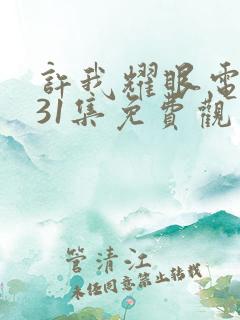 許我耀眼電
31集免費觀
管清江
未經同意禁止轉載